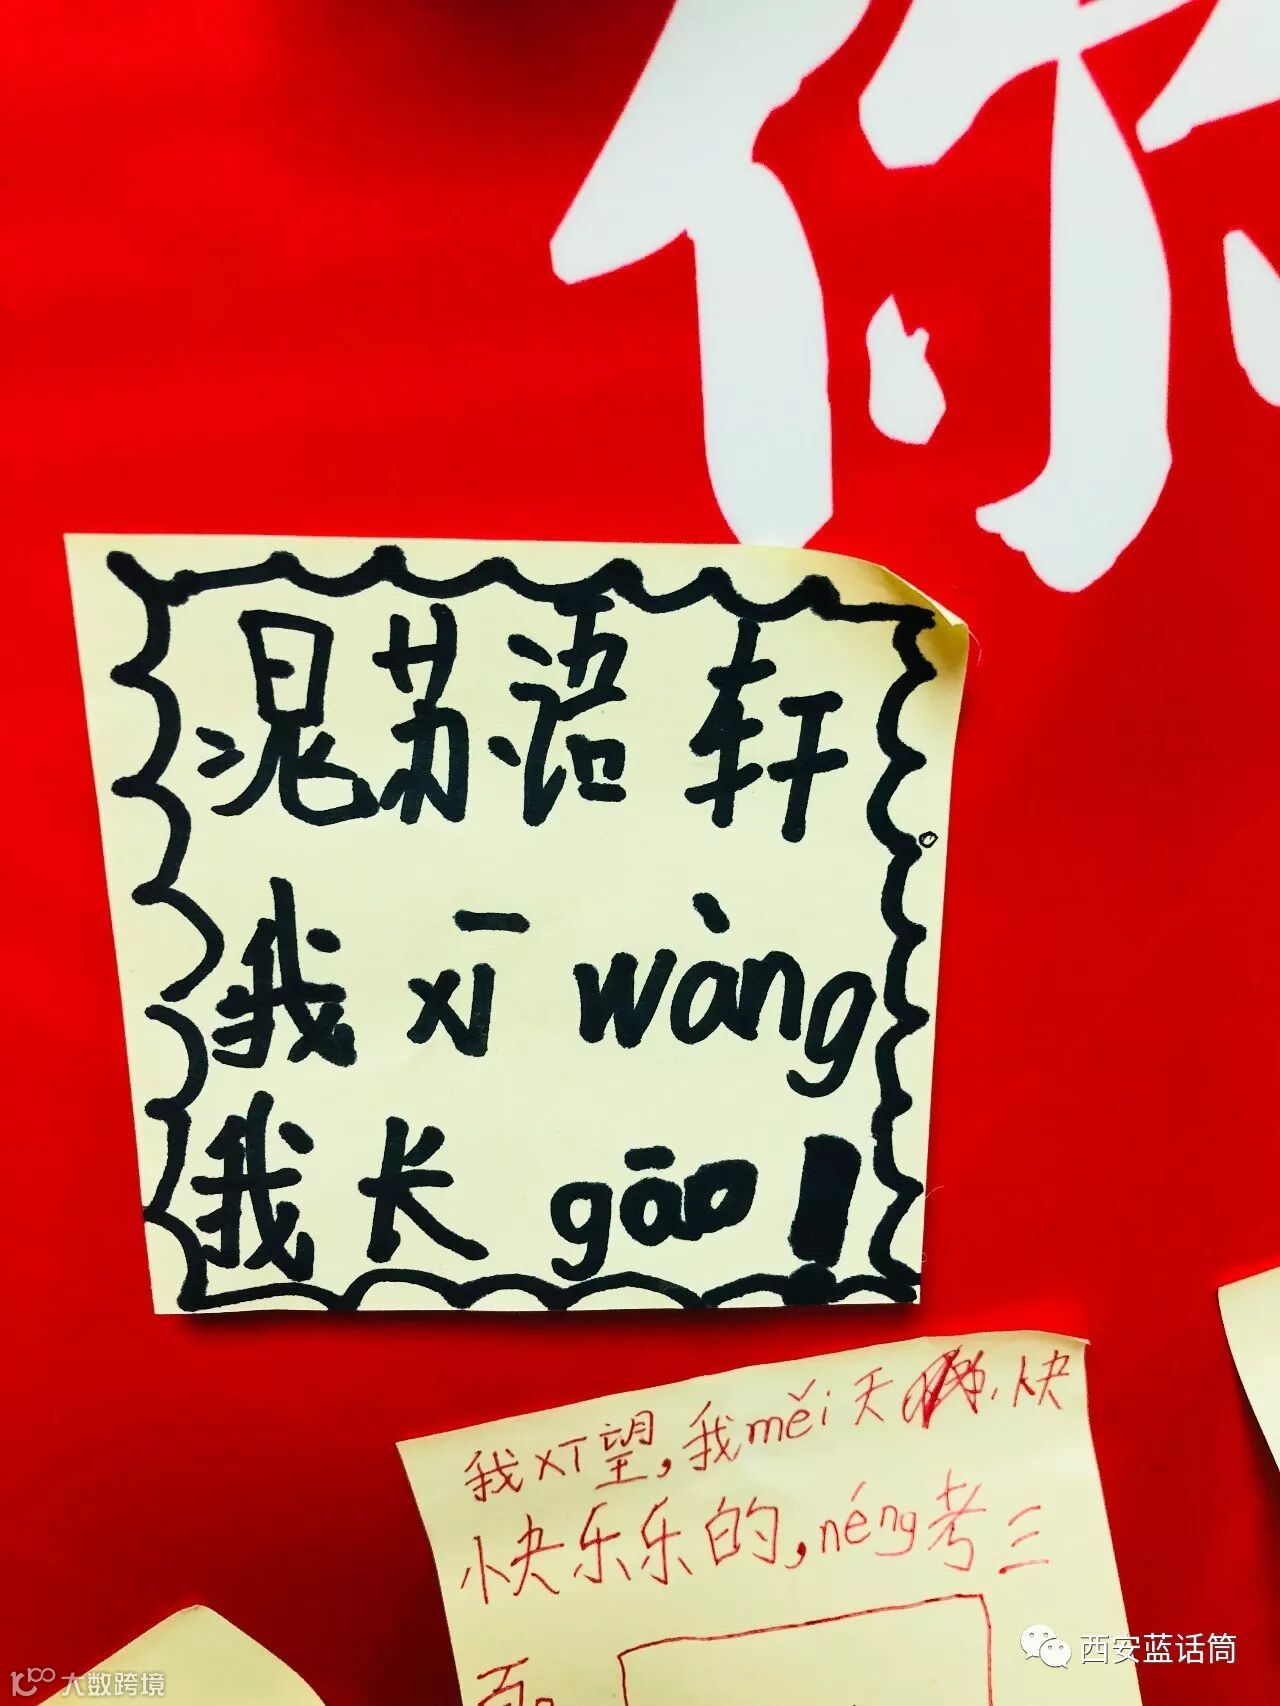 你
晁苏语轩
我xī wàng
我长gāo！
我xī望,我měi天快
快乐乐的,néng考三
百。
西安蓝话筒
大数跨境